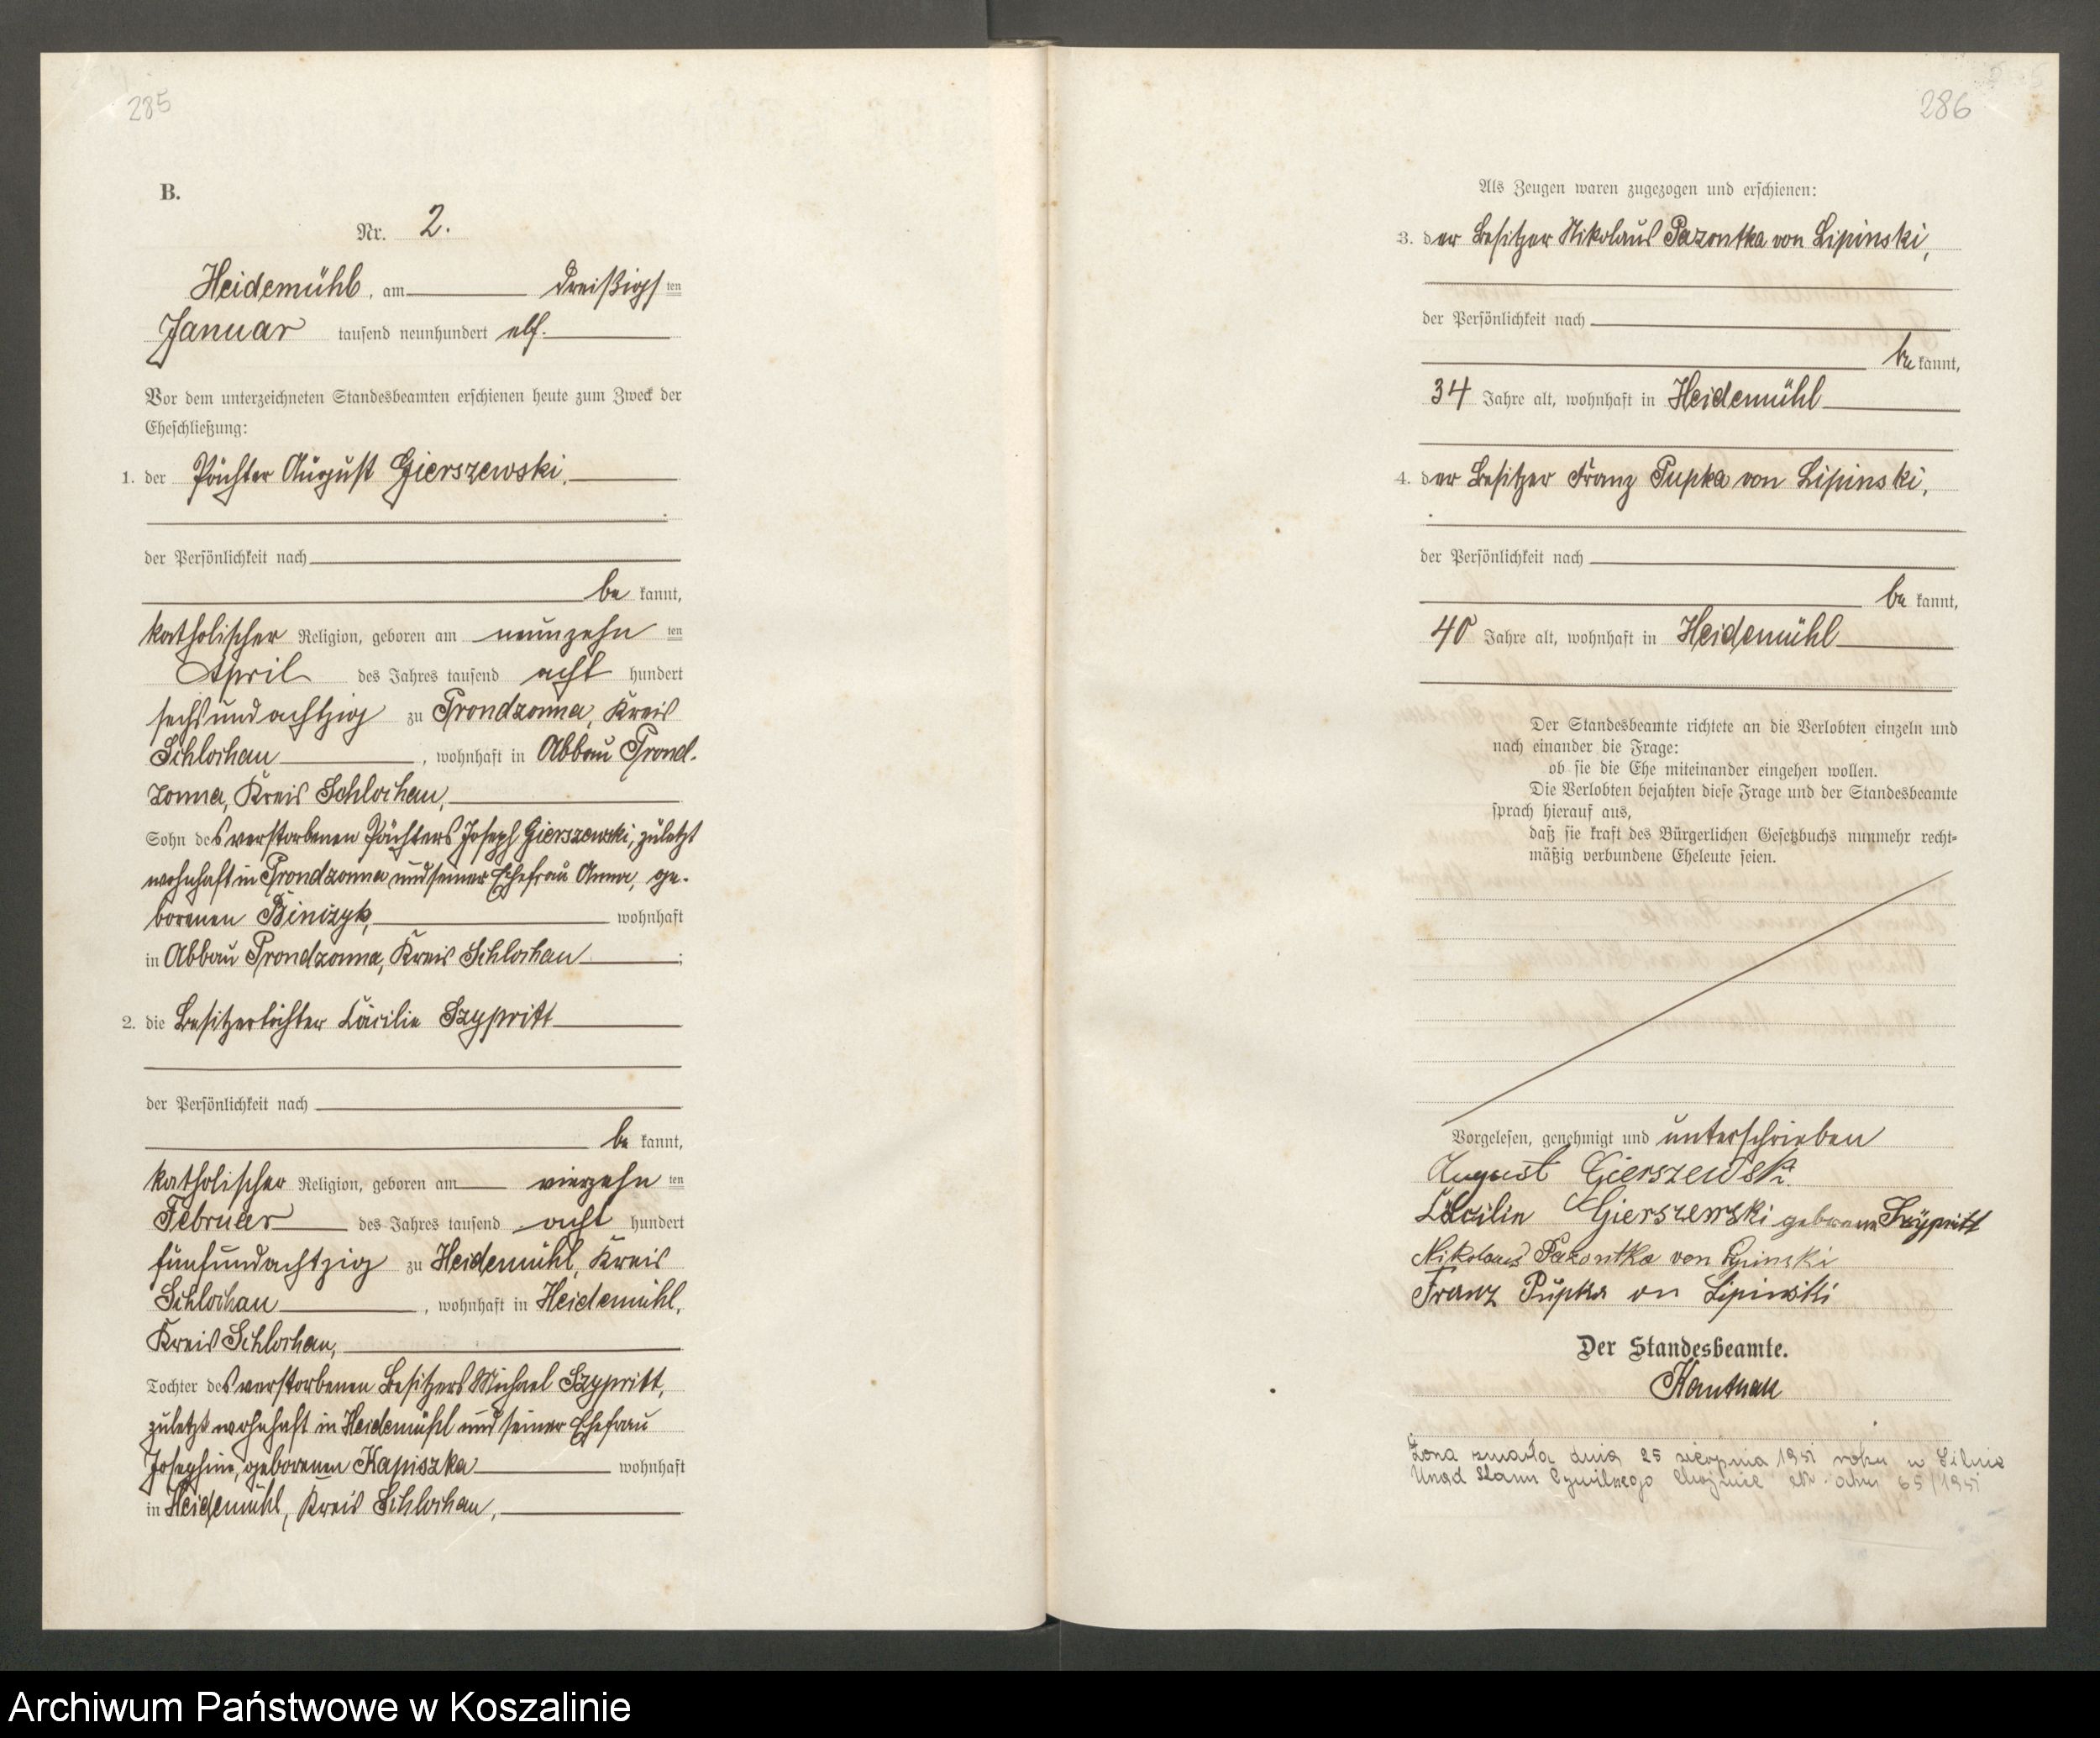 285
B.
Nr. 2.
Heidemühl, am dreißigsten
Januar tausend neunhundert elf.
Vor dem unterzeichneten Standesbeamten erschienen heute zum Zweck der
Eheschließung:
1. der Pächter August Gierszewski,
der Persönlichkeit nach
be kannt,
katholischer Religion, geboren am neunzehn ten
April des Jahres tausend acht hundert
sechsundachtzig zu Prondzonna, Kreis
Schlochau, wohnhaft in Abbau Prond-
zonna, Kreis Schlochau,
Sohn des verstorbenen Pächters Joseph Gierszewski, zuletzt
wohnhaft in Prondzonna und seiner Ehefrau Anna, ge-
borenen Binczyk, wohnhaft
in Abbau Prondzonna, Kreis Schlochau;
2. die Besitzertochter Cäcilie Szypritt
der Persönlichkeit nach
be kannt,
katholischer Religion, geboren am vierzehn ten
Februar des Jahres tausend acht hundert
fünfundachtzig zu Heidemühl, Kreis
Schlochau, wohnhaft in Heidemühl,
Kreis Schlochau,
Tochter des verstorbenen Besitzers Michael Szypritt,
zuletzt wohnhaft in Heidemühl und seiner Ehefrau
Josephine, geborenen Kapiszka wohnhaft
in Heidemühl, Kreis Schlochau,
286
Als Zeugen waren zugezogen und erschienen:
3. der Besitzer Nikolaus Pazontka von Lipinski,
der Persönlichkeit nach
be kannt,
34 Jahre alt, wohnhaft in Heidemühl
4. der Besitzer Franz Pupka von Lipinski,
der Persönlichkeit nach
be kannt,
40 Jahre alt, wohnhaft in Heidemühl
Der Standesbeamte richtete an die Verlobten einzeln und
nach einander die Frage:
ob sie die Ehe miteinander eingehen wollen.
Die Verlobten bejahten diese Frage und der Standesbeamte
sprach hierauf aus,
daß sie kraft des Bürgerlichen Gesetzbuchs nunmehr recht-
mäßig verbundene Eheleute seien.
Vorgelesen, genehmigt und unterschrieben
August Gierszewski
Cäcilie Gierszewski geborene Szypritt
Nikolaus Pazontka von Lipinski
Franz Pupka on Lipinski
Der Standesbeamte.
Kauthak
Żona zmarła dnia 25 sierpnia 1951 roku w Silnie
Urząd Stanu Cywilnego Chojnice aktu 65/1951
Archiwum Państwowe w Koszalinie